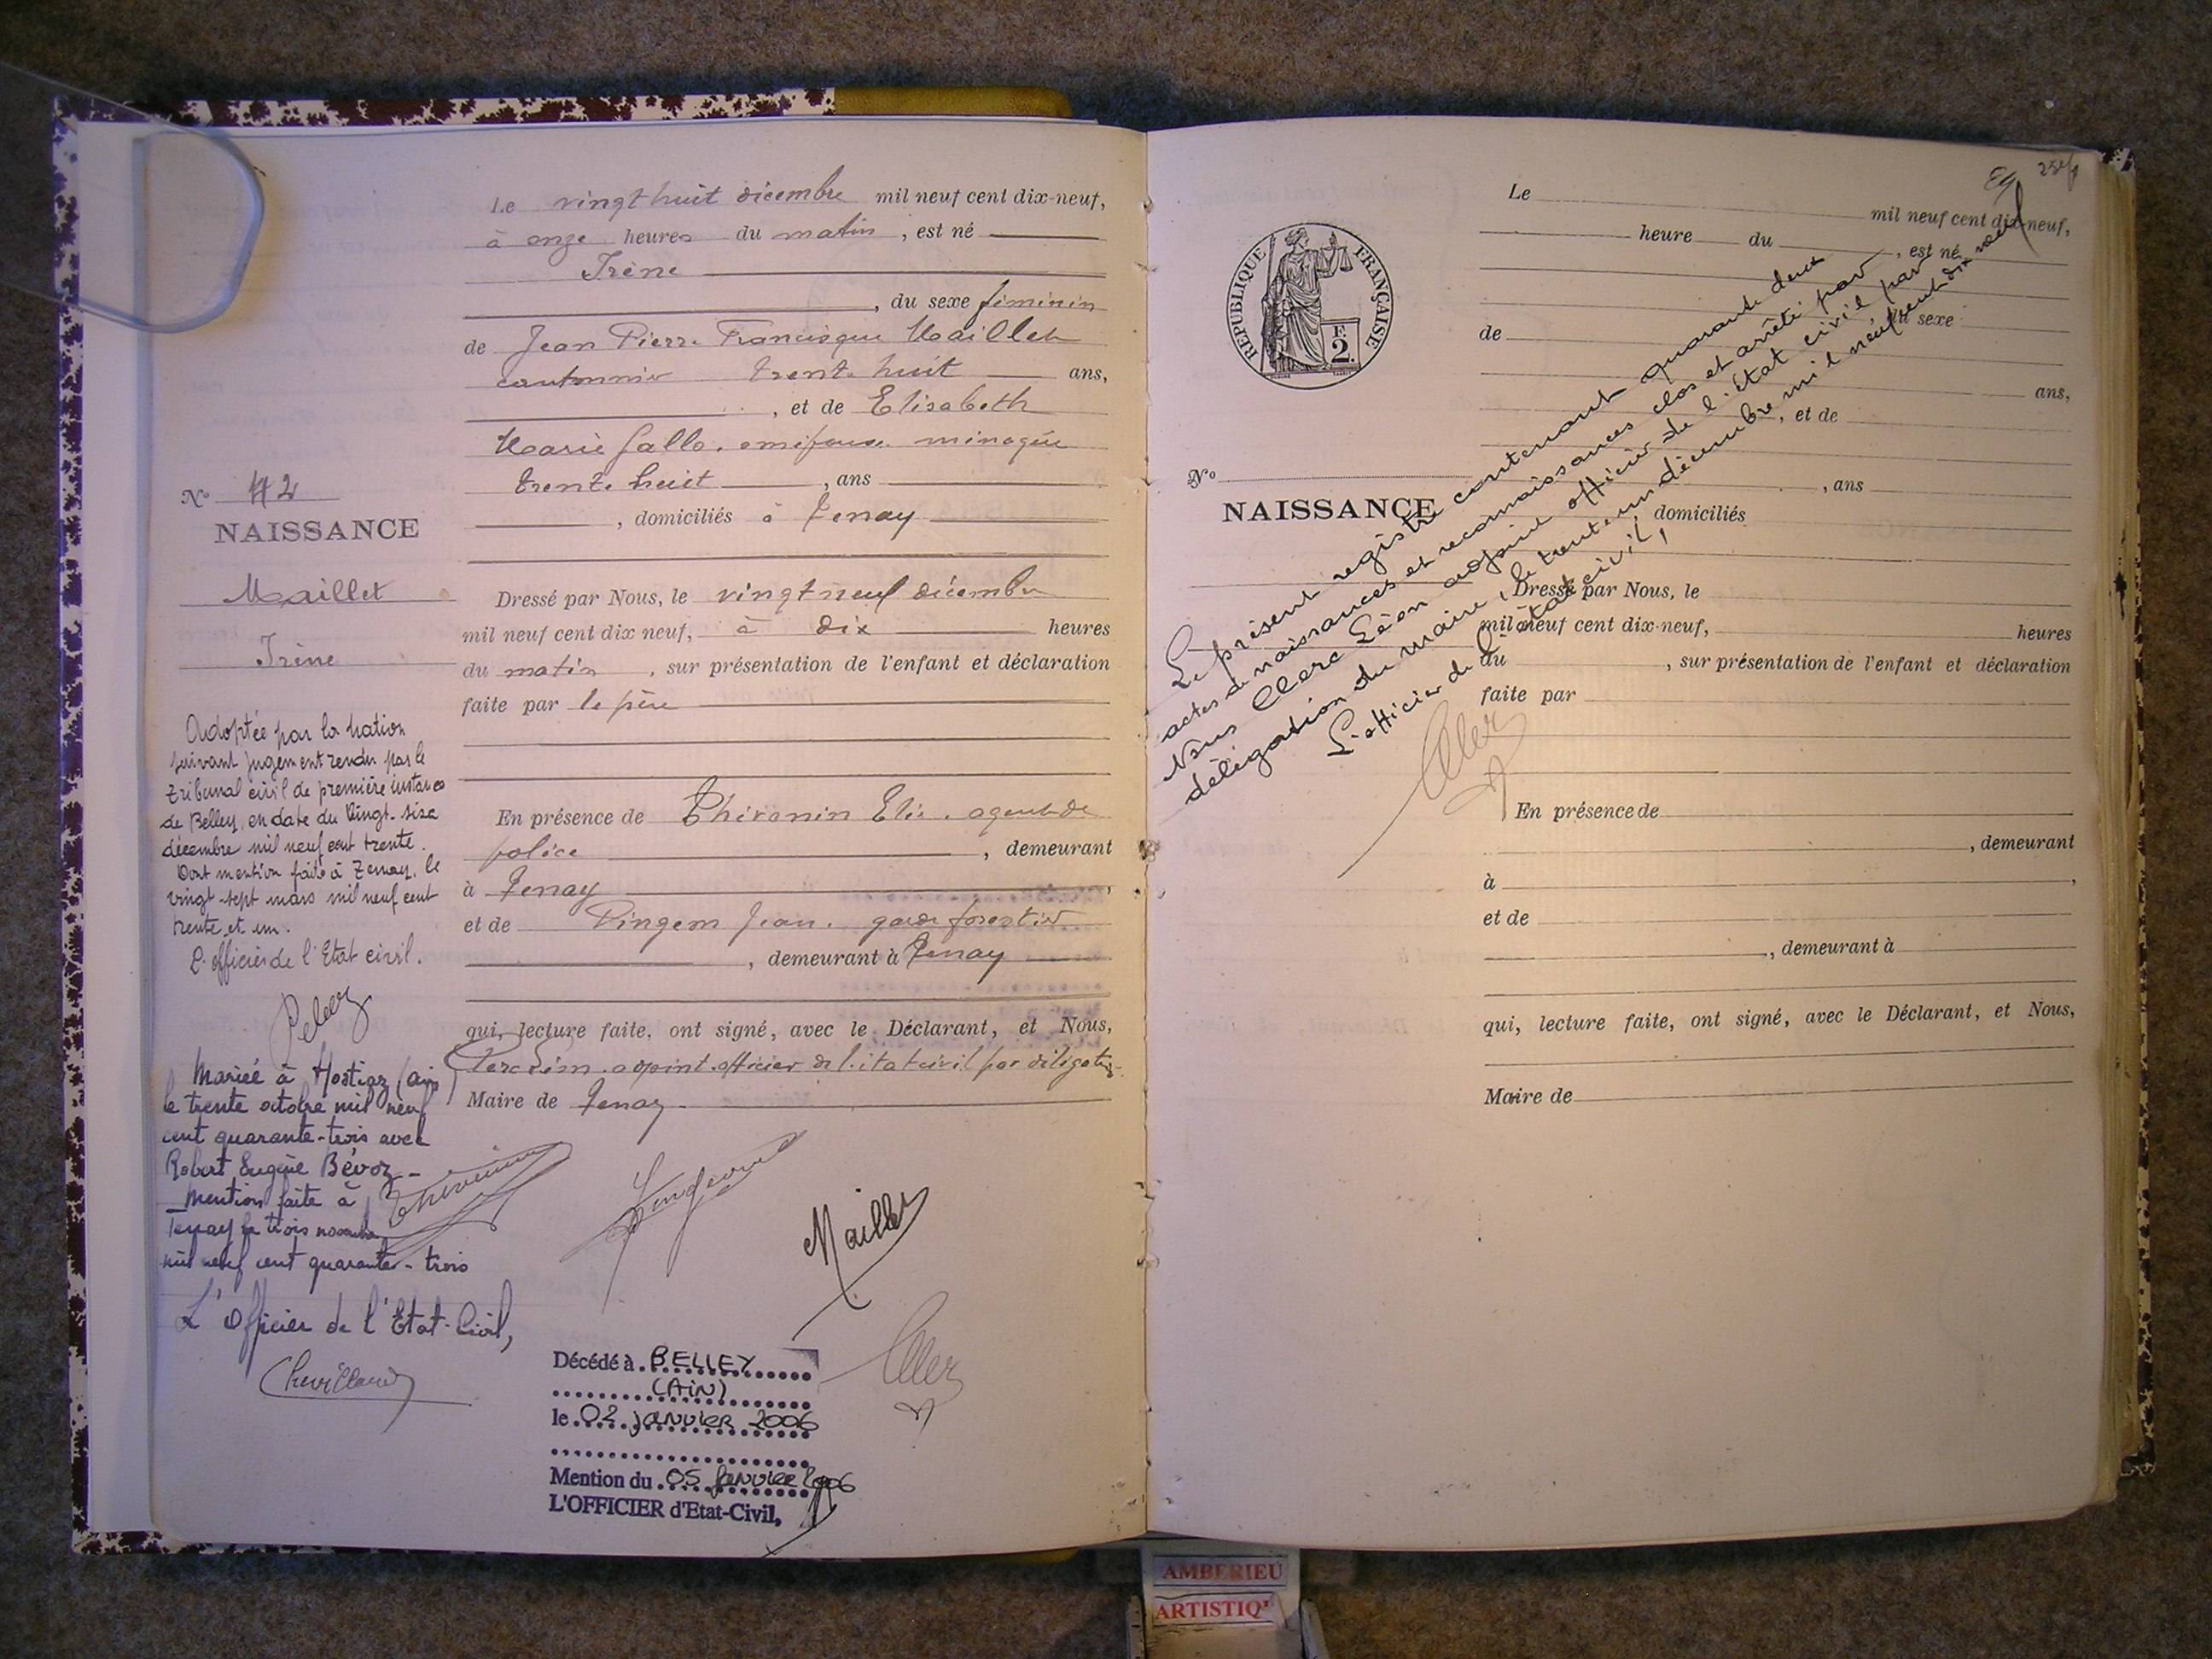 Le vingt huit décembre mil neuf cent dix-neuf,
à onze heures du matin, est né
Irène
, du sexe féminin
de Jean Pierre Francisque Maillet
cantonnier trente huit ans,
, et de Elisabeth
Marie Gallo, son épouse ménagère
trente huit, ans
, domiciliés à Tenay
No 42
NAISSANCE
Maillet
Irène
Dressé par Nous, le vingt neuf décembre
mil neuf cent dix neuf, à dix heures
du matin, sur présentation de l'enfant et déclaration
faite par le père
En présence de Thévenin Elie, agent de
police, demeurant
à Tenay,
et de Jean, garde forestier
, demeurant à Tenay
qui, lecture faite, ont signé, avec le Déclarant, et Nous,
Clerc Léon, adjoint officier de l'état civil par délégation
Maire de Tenay
Adoptée par la Nation
suivant jugement rendu par le
tribunal civil de première instance
de Belley, en date du vingt-six
décembre mil neuf cent trente.
Dont mention faite à Tenay, le
vingt-sept mars mil neuf cent
trente et un.
L'officier de l'Etat civil.
Mariée à Hostiaz (ain)
le trente octobre mil neuf
cent quarante-trois avec
Robert Eugène Bévoz -
Mention faite à
Tenay le trois novembre
mil neuf cent quarante-trois
L'Officier de l'Etat-Civil,
Thévenin
Maillet
Clerc
Décédé à BELLEY
(AIN)
le 02 janvier 2006
Mention du 05 janvier 2006
L'OFFICIER d'Etat-Civil,
RÉPUBLIQUE FRANÇAISE
F.
2.
No
NAISSANCE
Le mil neuf cent dix-neuf,
heure du, est né
, du sexe
de
ans,
, et de
, ans
, domiciliés
Dressé par Nous, le
mil neuf cent dix-neuf, heures
du, sur présentation de l'enfant et déclaration
faite par
En présence de
, demeurant
à,
et de
, demeurant à
qui, lecture faite, ont signé, avec le Déclarant, et Nous,
Maire de
Le présent registre contenant quarante deux
actes de naissances et reconnaissances clos et arrêté par
Nous Clerc Léon adjoint officier de l'état civil par
délégation du maire, le trente un décembre mil neuf cent dix neuf
L'officier de l'état civil,
Clerc
AMBERIEU
ARTISTIQ